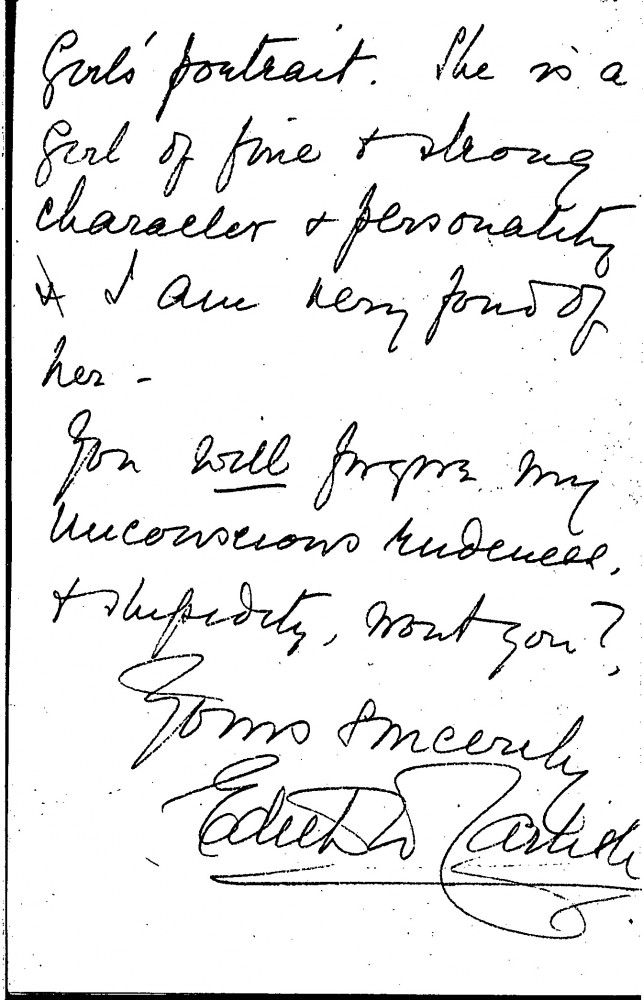 Girls' portrait. She is a
girl of fine & strong
character & personality
& I am very fond of
her -
You will forgive my
unconscious rudeness,
& stupidity, wont you?
Yours sincerely
Edith